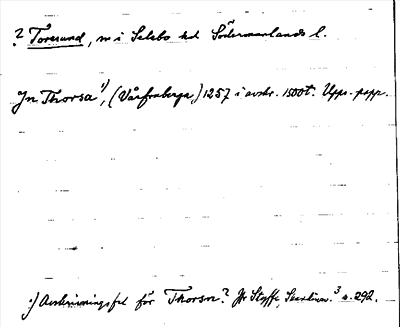 ? Toresund, sn i Selebo hd Södermanlands l.
In Thorsa¹⁾, (Vårfruberga) 1257 i avskr. 1500t. Upps. papp.
¹⁾ Avskrivningsfel för Thorsn? Jfr Styffe, Skandinav.³ s. 292.